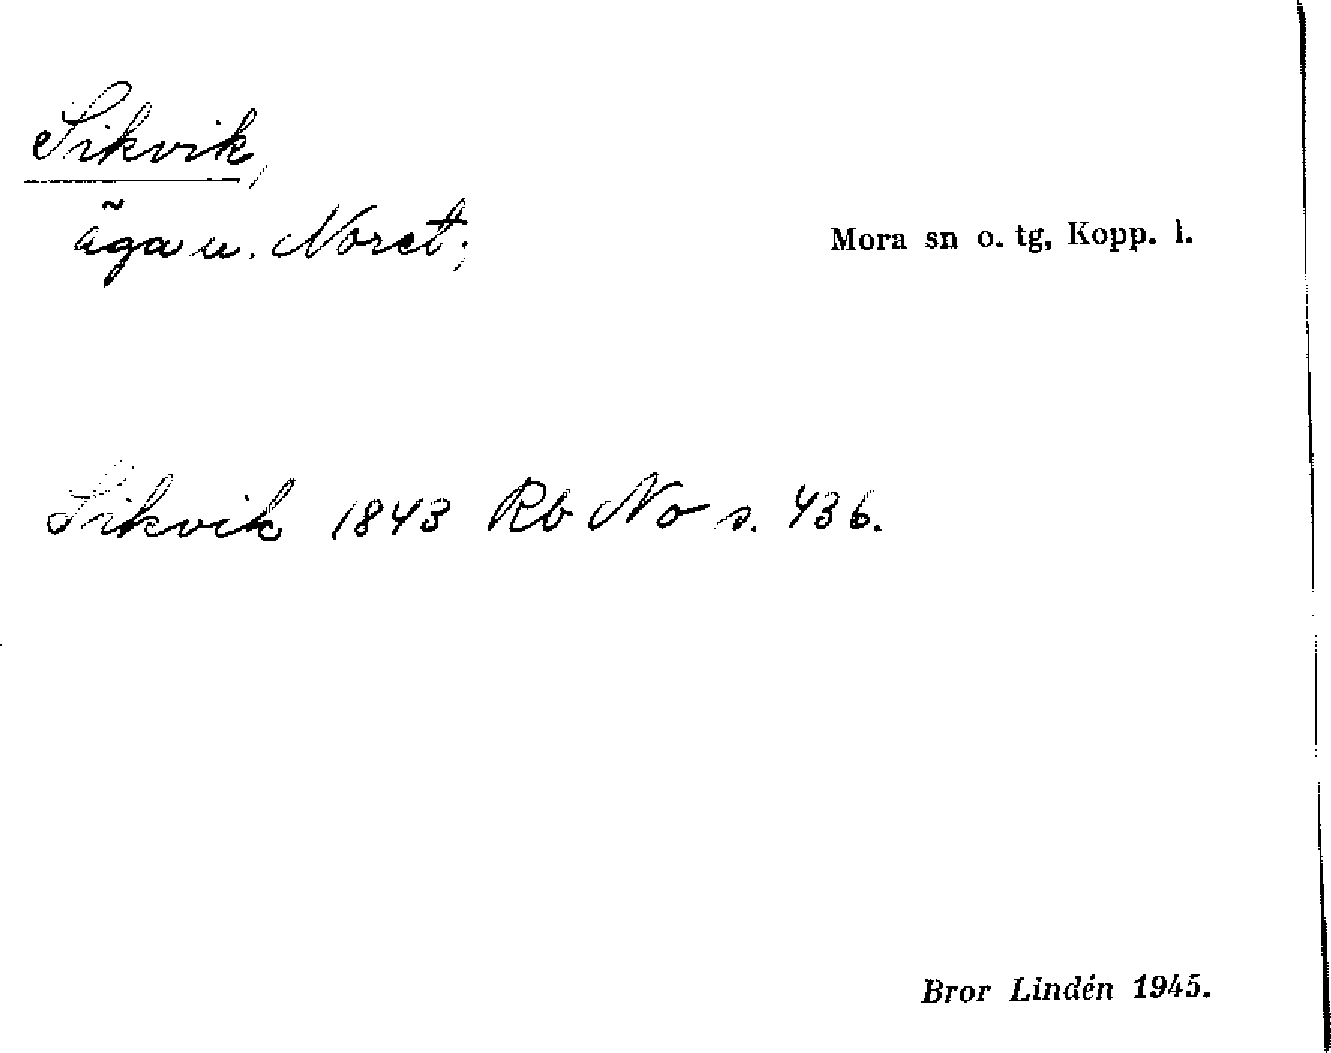 Sikvik,
äga u. Noret;
Mora sn o. tg, Kopp. l.
Sikvik 1843 Rb No s. 436.
Bror Lindén 1945.